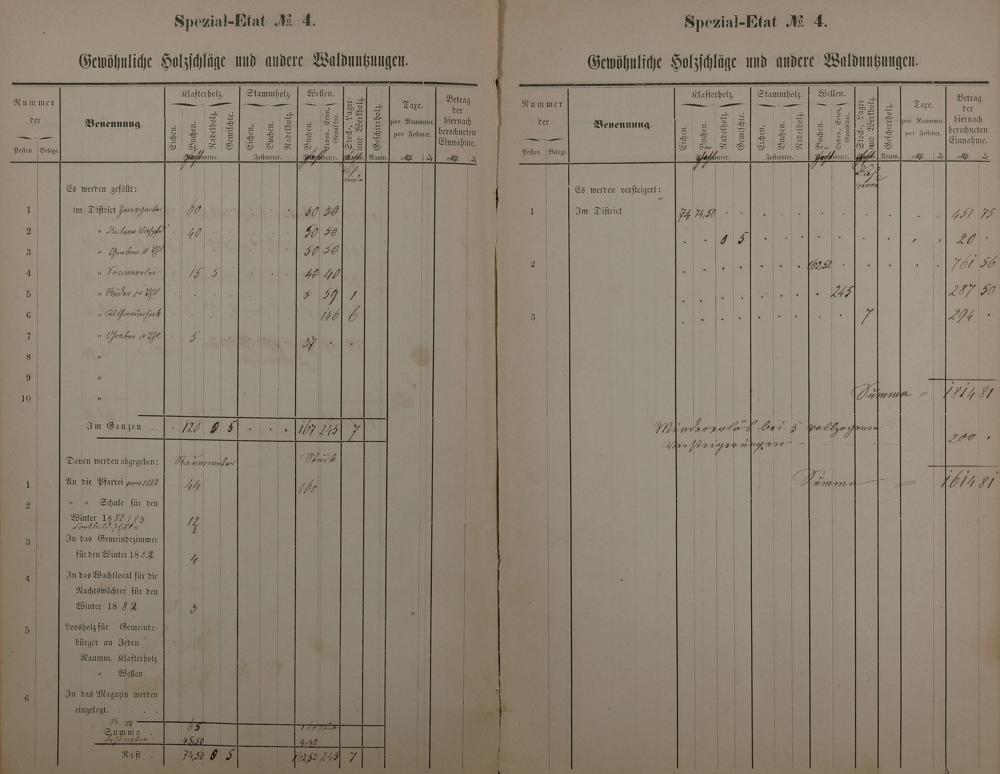 Spezial-Etat № 4.
Gewöhnliche Holzschläge und andere Waldnutzungen.
Nummer der
Posten Belege.
Benennung.
Klafterholz.
Eichen. Buchen. Nadelholz. Gemischte.
Stammholz.
Eichen. Buchen. Nadelholz.
Festmeter.
Wellen.
Buchen.
Stock-, Lager- und Werkholz.
Geschirrholz.
Raum.
Taxe.
per Raummet.
per Festmet.
Betrag der hiernach berechneten Einnahme.
Es werden gefällt:
1 im District 60 50 50
2 " 40 50 50
3 " 50 50
4 " 15 5 40 40
5 " 59 1
6 " 146 6
7 " 5 27
8 "
9 "
10 "
Im Ganzen 120 5 167 245 7
Davon werden abgegeben: Raummeter Stück
1 An die Pfarrei pro 1882 44 160
2 " " Schule für den
Winter 1882/83 12
2
3 In das Gemeindezimmer
für den Winter 1882 4
4 In das Wachtlocal für die
Nachtswächter für den
Winter 1882 3
5 Loosholz für Gemeinde-
bürger an Jeden
Raumm. Klafterholz
" Wellen
6 In das Magazin werden
eingelegt.
Summa 65
45,50 4,48
Rest 74,50 5 162,52 245 7
Spezial-Etat № 4.
Gewöhnliche Holzschläge und andere Waldnutzungen.
Nummer der
Posten Belege.
Benennung.
Klafterholz.
Eichen. Buchen. Nadelholz. Gemischte.
Stammholz.
Eichen. Buchen. Nadelholz.
Festmeter.
Wellen.
Buchen.
Stock-, Lager- und Werkholz.
Geschirrholz.
Raum.
Taxe.
per Raummet.
per Festmet.
Betrag der hiernach berechneten Einnahme.
Es werden versteigert:
1 Im District 74,50 451 75
5 20
2 162,52 761 56
245 287 50
3 7 294
Summa = 1814 81
Mindererlös bei 5 vollzogenen
Versteigerungen - 200
Summa = 1614 81